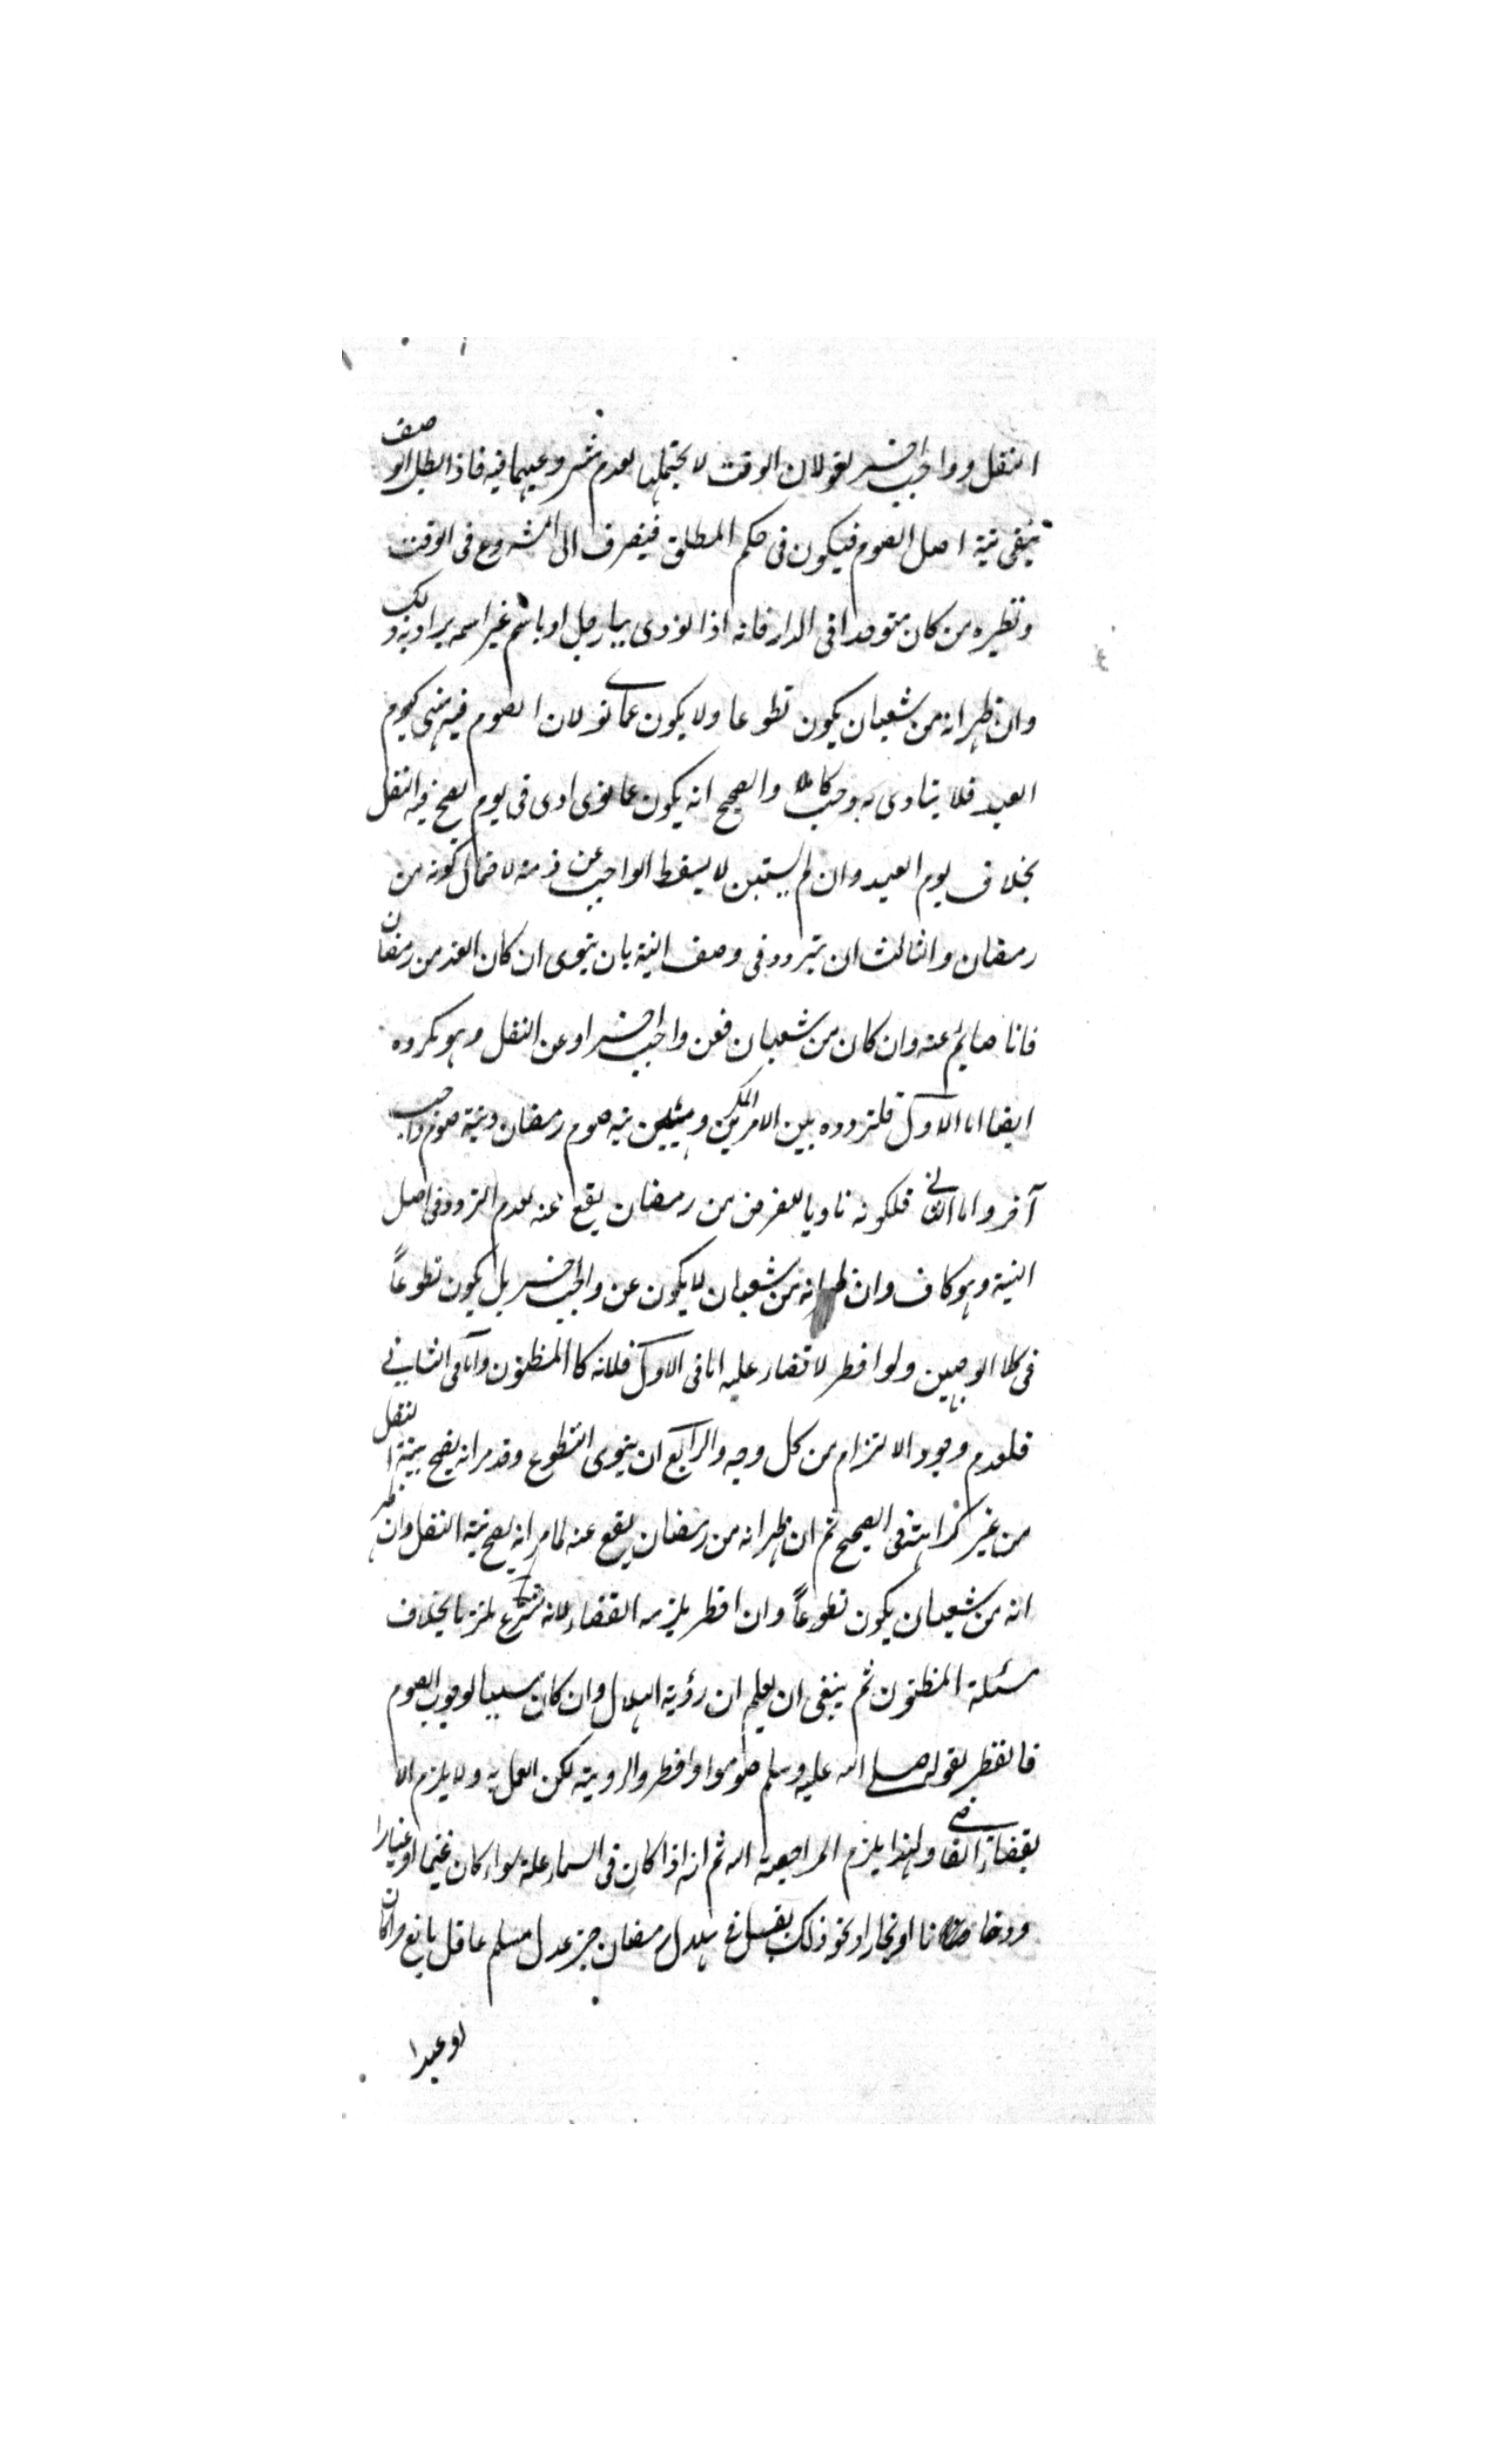 النفل وواجب آخر لغو لان الوقت لا يحتملها لعدم شروعيهما فيه فاذا بطل الوصف
تبقى نية اصل الصوم فيكون فى حكم المطلق فينصرف الى المشروع فى الوقت
ونظيره من كان متوحدا فى الدار فانه اذا نودى بيا رجل او باسم غير اسمه يراد به ذلك
وان ظهر انه من شعبان يكون تطوعا ولا يكون عما نوى لان الصوم فيه منهى كيوم
العيد فلا يتادى به واجب كاملا والصحيح انه يكون عما نوى ادى فى يوم يصح فيه النفل
بخلاف يوم العيد وان لم يستبن لا يسقط الواجب عن ذمته لاحتمال كونه من
رمضان والثالث ان يتردد فى وصف النية بان ينوى ان كان الغد من رمضان
فانا صايم عنه وان كان من شعبان فعن واجب آخر او عن النفل وهو مكروه
ايضا اما الاول فلتردده بين الامرين المكروهين نية صوم رمضان ونية صوم واجب
آخر واما الثانى فلكونه ناويا للفرض من رمضان يقع عنه لعدم التردد فى اصل
النية وهو كاف وان ظهر انه من شعبان لا يكون عن واجب آخر بل يكون تطوعاً
فى كلا الوجهين ولو افطر لا قضاء عليه اما فى الاول فلانه كالمظنون واما فى الثانى
فلعدم وجود الالتزام من كل وجه والرابع ان ينوى التطوع وقد مر انه يصح بنية النفل
من غير كراهته فى الصحيح ثم ان ظهر انه من رمضان يقع عنه لما مر انه يصح بنية النفل وان ظهر
انه من شعبان يكون تطوعاً وان افطر يلزمه القضاء لانه شرع ملتزما بخلاف
مسئلة المظنون ثم ينبغى ان يعلم ان رؤية الهلال وان كان سببا لوجوب الصوم
فالفطر لقوله صلى الله عليه وسلم صوموا وافطروا لرويته لكن العمل به ولا يلزم الا
بقضاء القاضى ولهذا يلزم المراجعة اليه ثم انه اذا كان فى السماء علة سواء كان غيما او غبارا
ودخانا او بخارا ونحو ذلك يقبل فى هلال رمضان خبر عدل مسلم عاقل بالغ حرا كان
او عبدا